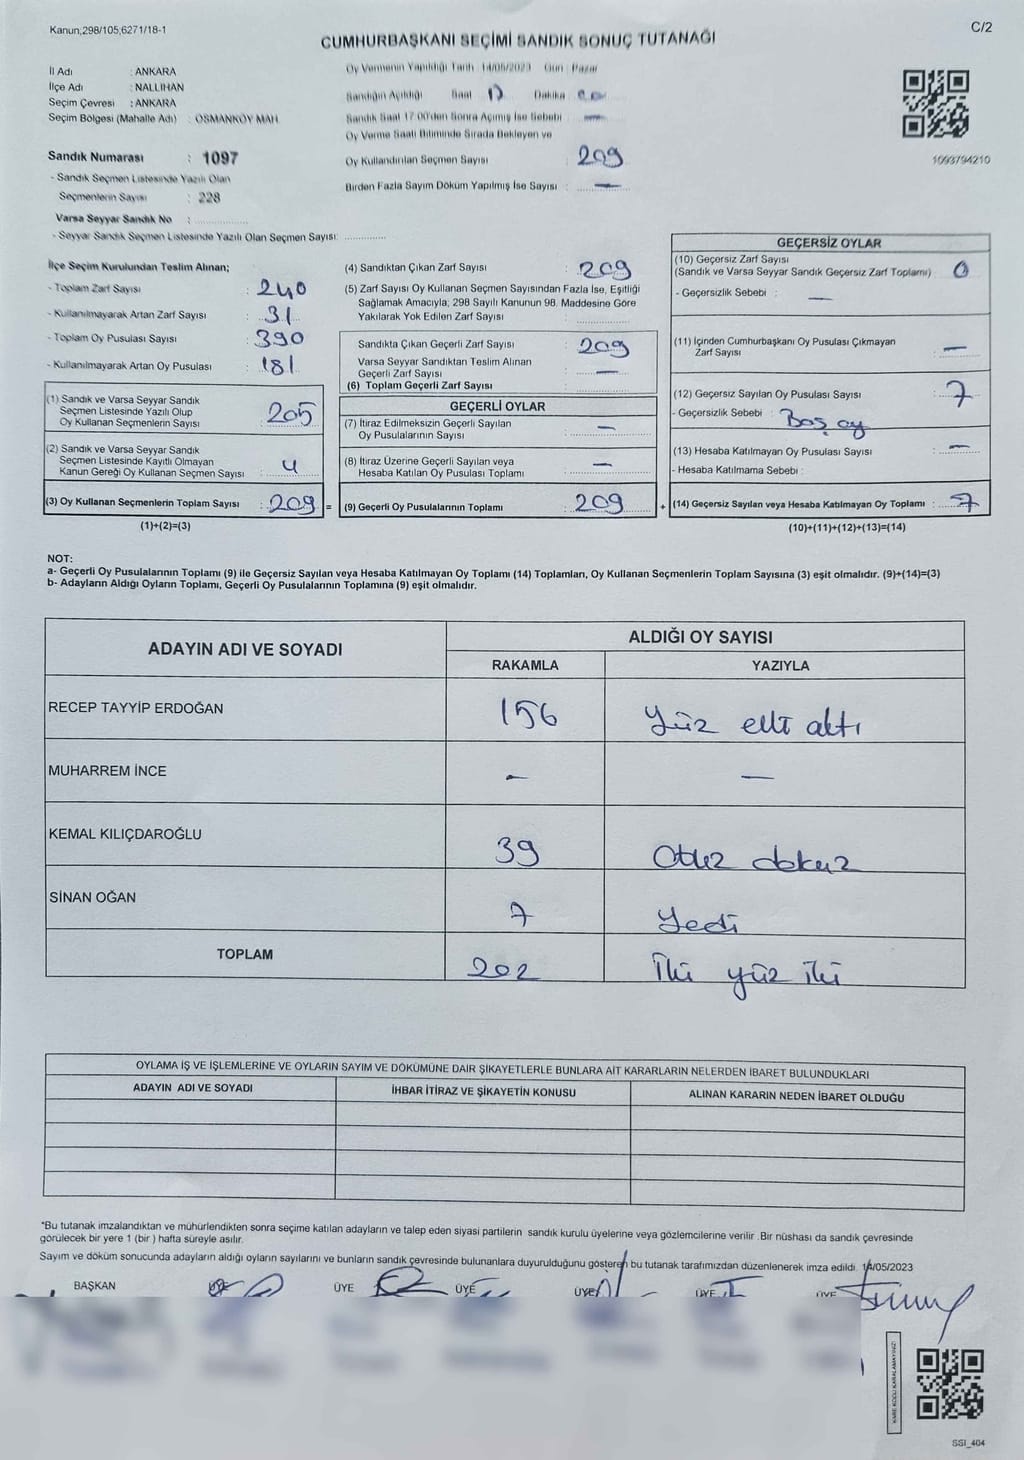 Kanun;298/105,6271/18-1
C/2
CUMHURBAŞKANI SEÇİMİ SANDIK SONUÇ TUTANAĞI
İl Adı : ANKARA
İlçe Adı : NALLIHAN
Seçim Çevresi : ANKARA
Seçim Bölgesi (Mahalle Adı) : OSMANKÖY MAH.
Oy Vermenin Yapıldığı Tarih 14/05/2023 Gün : Pazar
Sandığın Açıldığı Saat 17 Dakika 00
Sandık Saat 17:00'den Sonra Açımış İse Sebebi —
Oy Verme Saati Bitiminde Sırada Bekleyen ve
Oy Kullandırılan Seçmen Sayısı 209
Birden Fazla Sayım Döküm Yapılmış İse Sayısı : —
1093794210
Sandık Numarası : 1097
- Sandık Seçmen Listesinde Yazılı Olan
Seçmenlerin Sayısı : 228
Varsa Seyyar Sandık No :
- Seyyar Sandık Seçmen Listesinde Yazılı Olan Seçmen Sayısı:
İlçe Seçim Kurulundan Teslim Alınan;
- Toplam Zarf Sayısı : 240
- Kullanılmayarak Artan Zarf Sayısı : 31
- Toplam Oy Pusulası Sayısı : 390
- Kullanılmayarak Artan Oy Pusulası : 181
(1) Sandık ve Varsa Seyyar Sandık
Seçmen Listesinde Yazılı Olup
Oy Kullanan Seçmenlerin Sayısı : 205
(2) Sandık ve Varsa Seyyar Sandık
Seçmen Listesinde Kayıtlı Olmayan
Kanun Gereği Oy Kullanan Seçmen Sayısı : 4
(3) Oy Kullanan Seçmenlerin Toplam Sayısı : 209 =
(1)+(2)=(3)
(4) Sandıktan Çıkan Zarf Sayısı : 209
(5) Zarf Sayısı Oy Kullanan Seçmen Sayısından Fazla İse, Eşitliği
Sağlamak Amacıyla; 298 Sayılı Kanunun 98. Maddesine Göre
Yakılarak Yok Edilen Zarf Sayısı :
Sandıkta Çıkan Geçerli Zarf Sayısı : 209
Varsa Seyyar Sandıktan Teslim Alınan
Geçerli Zarf Sayısı : —
(6) Toplam Geçerli Zarf Sayısı :
GEÇERLİ OYLAR
(7) İtiraz Edilmeksizin Geçerli Sayılan
Oy Pusulalarının Sayısı : —
(8) İtiraz Üzerine Geçerli Sayılan veya
Hesaba Katılan Oy Pusulası Toplamı : —
(9) Geçerli Oy Pusulalarının Toplamı : 209 +
GEÇERSİZ OYLAR
(10) Geçersiz Zarf Sayısı
(Sandık ve Varsa Seyyar Sandık Geçersiz Zarf Toplamı) : 0
- Geçersizlik Sebebi : —
(11) İçinden Cumhurbaşkanı Oy Pusulası Çıkmayan
Zarf Sayısı : —
(12) Geçersiz Sayılan Oy Pusulası Sayısı : 7
- Geçersizlik Sebebi : Boş oy
(13) Hesaba Katılmayan Oy Pusulası Sayısı : —
- Hesaba Katılmama Sebebi :
(14) Geçersiz Sayılan veya Hesaba Katılmayan Oy Toplamı : 7
(10)+(11)+(12)+(13)=(14)
NOT:
a- Geçerli Oy Pusulalarının Toplamı (9) ile Geçersiz Sayılan veya Hesaba Katılmayan Oy Toplamı (14) Toplamları, Oy Kullanan Seçmenlerin Toplam Sayısına (3) eşit olmalıdır. (9)+(14)=(3)
b- Adayların Aldığı Oyların Toplamı, Geçerli Oy Pusulalarının Toplamına (9) eşit olmalıdır.
ADAYIN ADI VE SOYADI
ALDIĞI OY SAYISI
RAKAMLA YAZIYLA
RECEP TAYYİP ERDOĞAN 156 Yüz elli altı
MUHARREM İNCE — —
KEMAL KILIÇDAROĞLU 39 Otuz dokuz
SİNAN OĞAN 7 Yedi
TOPLAM 202 İki yüz iki
OYLAMA İŞ VE İŞLEMLERİNE VE OYLARIN SAYIM VE DÖKÜMÜNE DAİR ŞİKAYETLERLE BUNLARA AİT KARARLARIN NELERDEN İBARET BULUNDUKLARI
ADAYIN ADI VE SOYADI İHBAR İTİRAZ VE ŞİKAYETİN KONUSU ALINAN KARARIN NEDEN İBARET OLDUĞU
*Bu tutanak imzalandıktan ve mühürlendikten sonra seçime katılan adayların ve talep eden siyasi partilerin sandık kurulu üyelerine veya gözlemcilerine verilir .Bir nüshası da sandık çevresinde
görülecek bir yere 1 (bir ) hafta süreyle asılır.
Sayım ve döküm sonucunda adayların aldığı oyların sayılarını ve bunların sandık çevresinde bulunanlara duyurulduğunu gösteren bu tutanak tarafımızdan düzenlenerek imza edildi. 14/05/2023
BAŞKAN ÜYE ÜYE ÜYE ÜYE ÜYE
KARE KODU KARALAMAYINIZ!
SSI_404